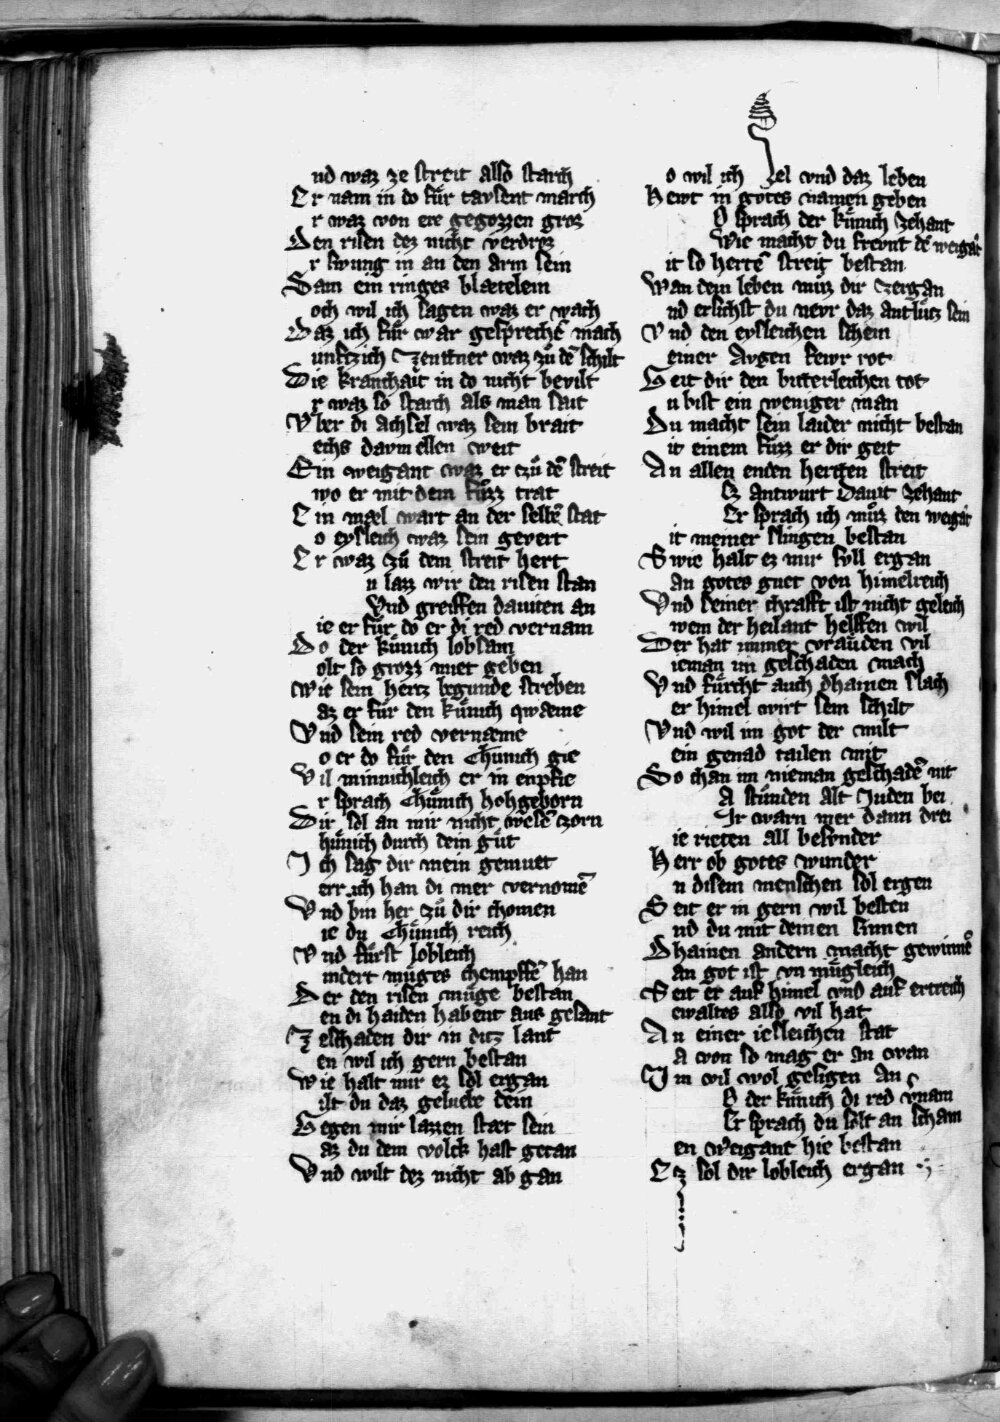 nd waz ze streit also starch
Er nam in do fuͤr tavsent march
r waz von ere gegozzen groz
Den risen dez nicht verdroz
r swung in an den arm sein
Sam ein ringes blætelein
och wil ich sagen waz er wach
Daz ich fuͤr war gesprechē mach
unftzich Zenttner waz zuͦ dē schilt
Die kranchait in do nicht bevilt
r waz so starch als man sait
Vber di achsel waz sein brait
echs davm ellen weit
Ein weigant waz er czuͦ dē streit
wo er mit dem fuͦzz trat
Ein mæl wart an der selbē stat
o eysleich waz sein gevert
Er waz zuͦ dem streit hert
u lazz wir den risen stan
Vnd greiffen daviten an
ie er fuͤr do er di red vernam
Do der kuͤnich lobsam
olt so grozz miet geben
Wie sein hertz begunde streben
az er fuͤr den kuͤnich qwæme
Vnd sein red vernæme
o er do fuͤr den Chuͤnich gie
Vil minnichleich er in enpfie
r sprach Chuͤnich hohgeborn
Dir sol an mir nicht wesē czorn
huͤnich durch dein guͤt
Ich sag dir mein gemuet
err ich han di mer vernomē
Vnd bin her zuͦ dir chomen
ie du Chuͤnich reich
Vnd fuͤrst lobleich
indert muͤges chempffē han
Der den risen muͤge bestan
en di haiden habent aus gesant
Ze schaden dir in ditz lant
en wil ich gern bestan
Wie halt mir ez sol ergan
ilt du daz geluebe dein
Gegen mir lazzen stæt sein
az du dem volck hast getan
Vnd wilt dez nicht ab gan
o wil ich sel vnd daz leben
Hewt in gotes namen geben
O sprach der kuͤnich zehant
Wie macht du frevnt dē weigāt
it so hertē streit bestan
Wan dem leben muͤz dir zergan
nd ersichst du nevr daz antluͤtz sein
Vnd den eysleichen schein
einer Avgen fewr rot
Geit dir den bitterleichen tot
u bist ein weniger man
Du macht sein laider nicht bestan
it einem fuͦzz er dir geit
An allen enden hertten streit
Ez antwurt Davit zehant
Er sprach ich muͦz den weigāt
it meiner slingen bestan
Swie halt ez mir sull ergan
an gotes guet von himelreich
Vnd seiner chrafft ist nicht geleich
wem der heilant helffen wil
Der hat immer vrauͤden vil
ieman im geschaden mach
Vnd fuͤrcht auch dhainen slach
er himel wirt sein schilt
Vnd wil im got der milt
ein genad tailen mit
So chan im nieman geschadē nit
A stuͦnden alt Juden bei
Ir warn mer dann drei
ie rieten all besvnder
Herr ob gotes wunder
n disem menschen sol ergen
Seit er in gern wil besten
nd du mit deinen sinnen
Dhainen andern macht gewinnē
an got ist vn muͤgleich
Seit er auf himel vnd auf ertreich
ewaltes also vil hat
An einer iesleichen stat
a von so mag er an wan
Im wil wol gesigen an
O der kuͤnich di red v̄nam
Er sprach du solt an scham
en weigant hie bestan
Ez sol dir lobleich ergan